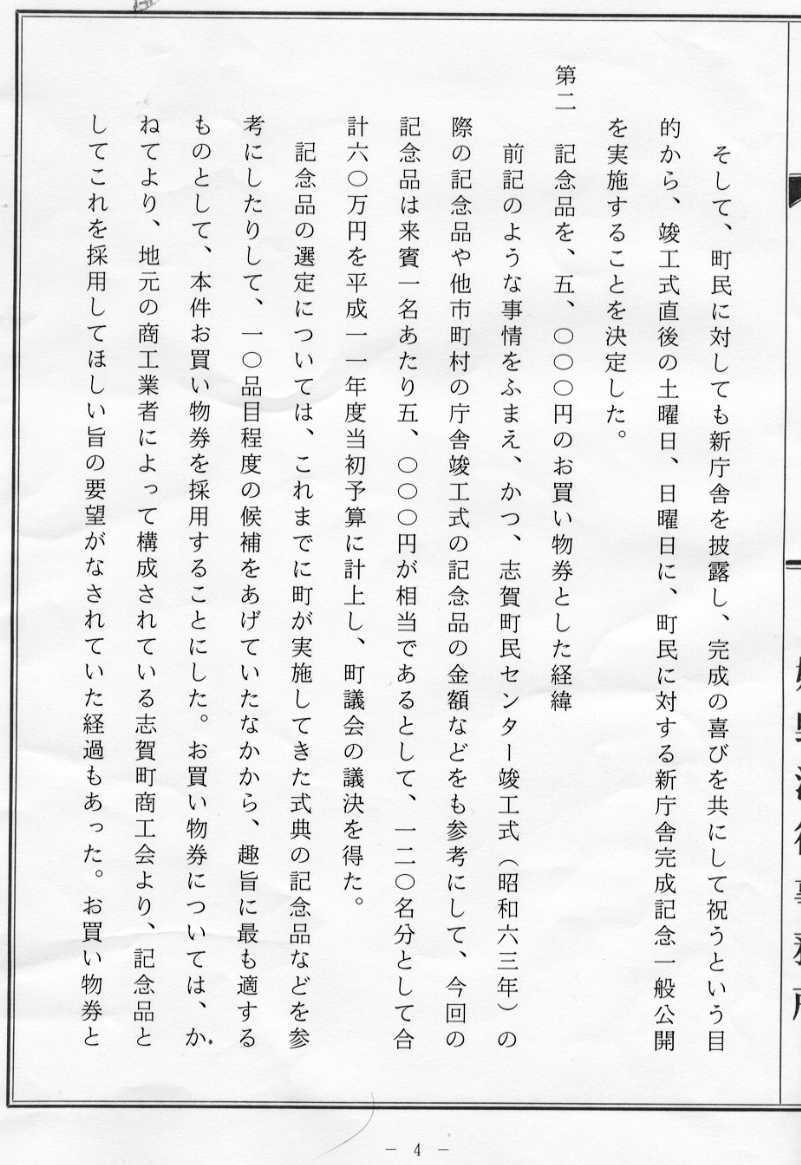 そして、町民に対しても新庁舎を披露し、完成の喜びを共にして祝うという目
的から、竣工式直後の土曜日、日曜日に、町民に対する新庁舎完成記念一般公開
を実施することを決定した。
第二　記念品を、五、〇〇〇円のお買い物券とした経緯
前記のような事情をふまえ、かつ、志賀町民センター竣工式（昭和六三年）の
際の記念品や他市町村の庁舎竣工式の記念品の金額などをも参考にして、今回の
記念品は来賓一名あたり五、〇〇〇円が相当であるとして、一二〇名分として合
計六〇万円を平成一一年度当初予算に計上し、町議会の議決を得た。
記念品の選定については、これまでに町が実施してきた式典の記念品などを参
考にしたりして、一〇品目程度の候補をあげていたなかから、趣旨に最も適する
ものとして、本件お買い物券を採用することにした。お買い物券については、か
ねてより、地元の商工業者によって構成されている志賀町商工会より、記念品と
してこれを採用してほしい旨の要望がなされていた経過もあった。お買い物券と
－ 4 －